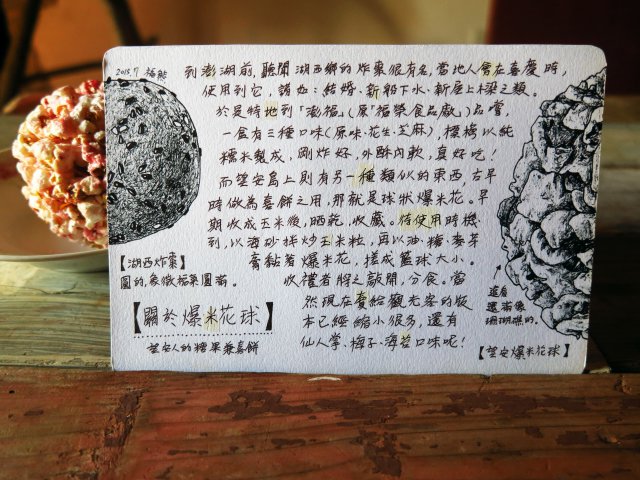 2015.7 福熊
到澎湖前,聽聞湖西鄉的炸棗很有名,當地人會在喜慶時,
使用到它,諸如:結婚、新船下水、新屋上樑之類。
於是特地到「澎福」(原「福榮食品廠」)品嚐,
一盒有三種口味(原味、花生、芝麻),模樣以純
糯米製成,剛炸好,外酥內軟,真好吃!
而望安島上則有另一種類似的東西,古早
時做為喜餅之用,那就是球狀爆米花。早
期收成玉米後,曬乾,收藏。待使用時機
到,以海砂拌炒玉米粒,再以油、糖、麥芽
膏黏著爆米花,搓成籃球大小。
收禮者將之敲開,分食。當
然現在賣給觀光客的版
本已經縮小很多,還有
仙人掌、梅子、海苔口味呢!
【湖西炸棗】
圓的,象徵福氣圓滿。
【關於爆米花球】
望安人的糖果兼喜餅
遠看
還滿像
珊瑚礁的。
【望安爆米花球】